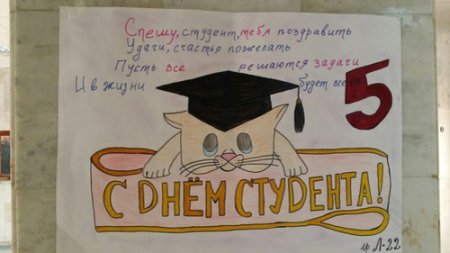 Спешу, студент, тебя поздравить
Удачи, счастья пожелать
Пусть все решаются задачи
И в жизни будет все на 5
С ДНЁМ СТУДЕНТА!
гр Л-22